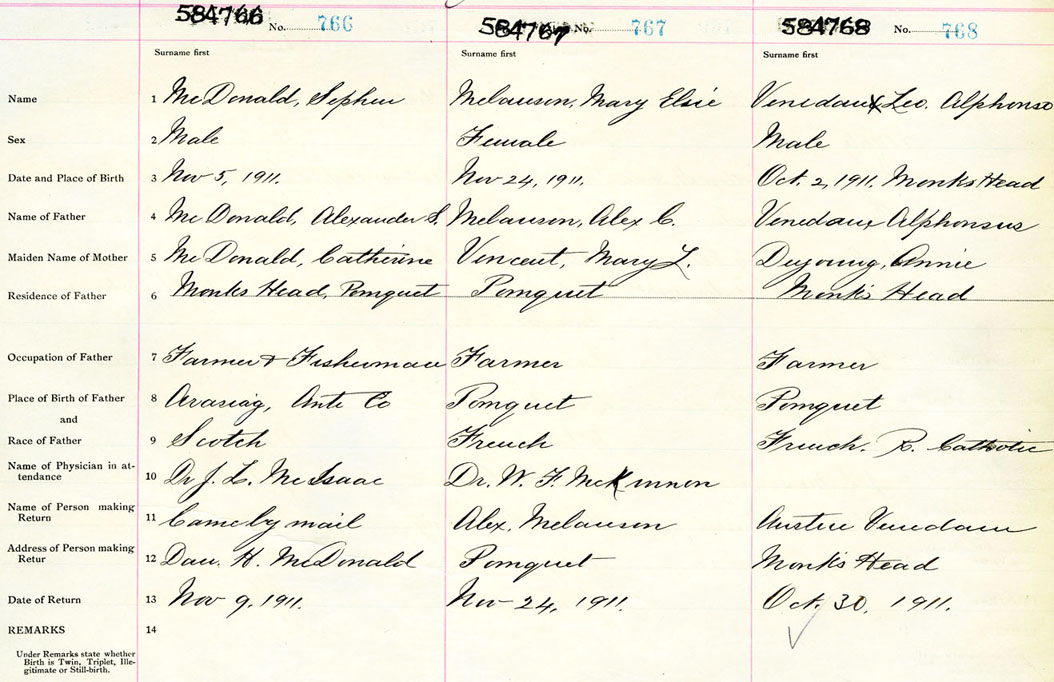 584766 No. 766 584767 No. 767 584768 No. 768
Surname first Surname first Surname first
Name 1 McDonald, Sephen Melanson, Mary Elsie Venedaux Leo. Alphonso
Sex 2 Male Female Male
Date and Place of Birth 3 Nov 5, 1911. Nov 24, 1911. Oct. 2, 1911. Monks Head
Name of Father 4 McDonald, Alexander S. Melanson, Alex C. Venedaux Alphonsus
Maiden Name of Mother 5 McDonald, Catherine Vincent, Mary L. Deyoung, Annie
Residence of Father 6 Monks Head, Pomquet Pomquet Monk's Head
Occupation of Father 7 Farmer & Fisherman Farmer Farmer
Place of Birth of Father 8 Arasiag, Ante Co Pomquet Pomquet
and
Race of Father 9 Scotch French French. R. Catholic
Name of Physician in at-
tendance 10 Dr J. L. McIsaac Dr. W. F. McKinnon
Name of Person making
Return 11 Came by mail Alex, Melanson Austin Venedam
Address of Person making
Retur 12 Dan. H. McDonald Pomquet Monk's Head
Date of Return 13 Nov 9, 1911. Nov-24, 1911. Oct. 30, 1911.
REMARKS 14
Under Remarks state whether
Birth is Twin, Triplet, Ille-
gitimate or Still-birth.